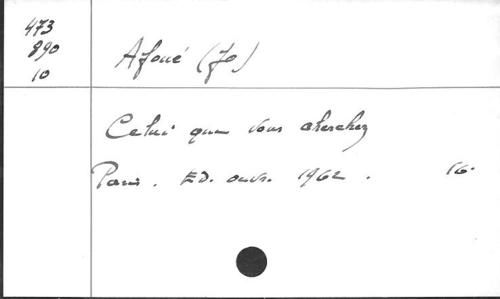 473
890
10
Afoué (Jo)
Celui que vous cherchez
Paris. Ed. ouvr. 1962. 16.